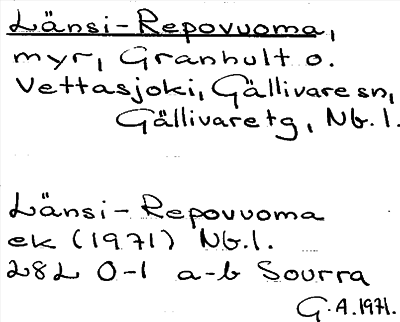 Länsi-Repovuoma,
myr, Granhult o.
Vettasjoki, Gällivare sn,
Gällivare tg, Nb.l.
Länsi-Repovuoma
ek (1971) Nb.l.
28L 0-1 a-b Sourra
G.A.1971.